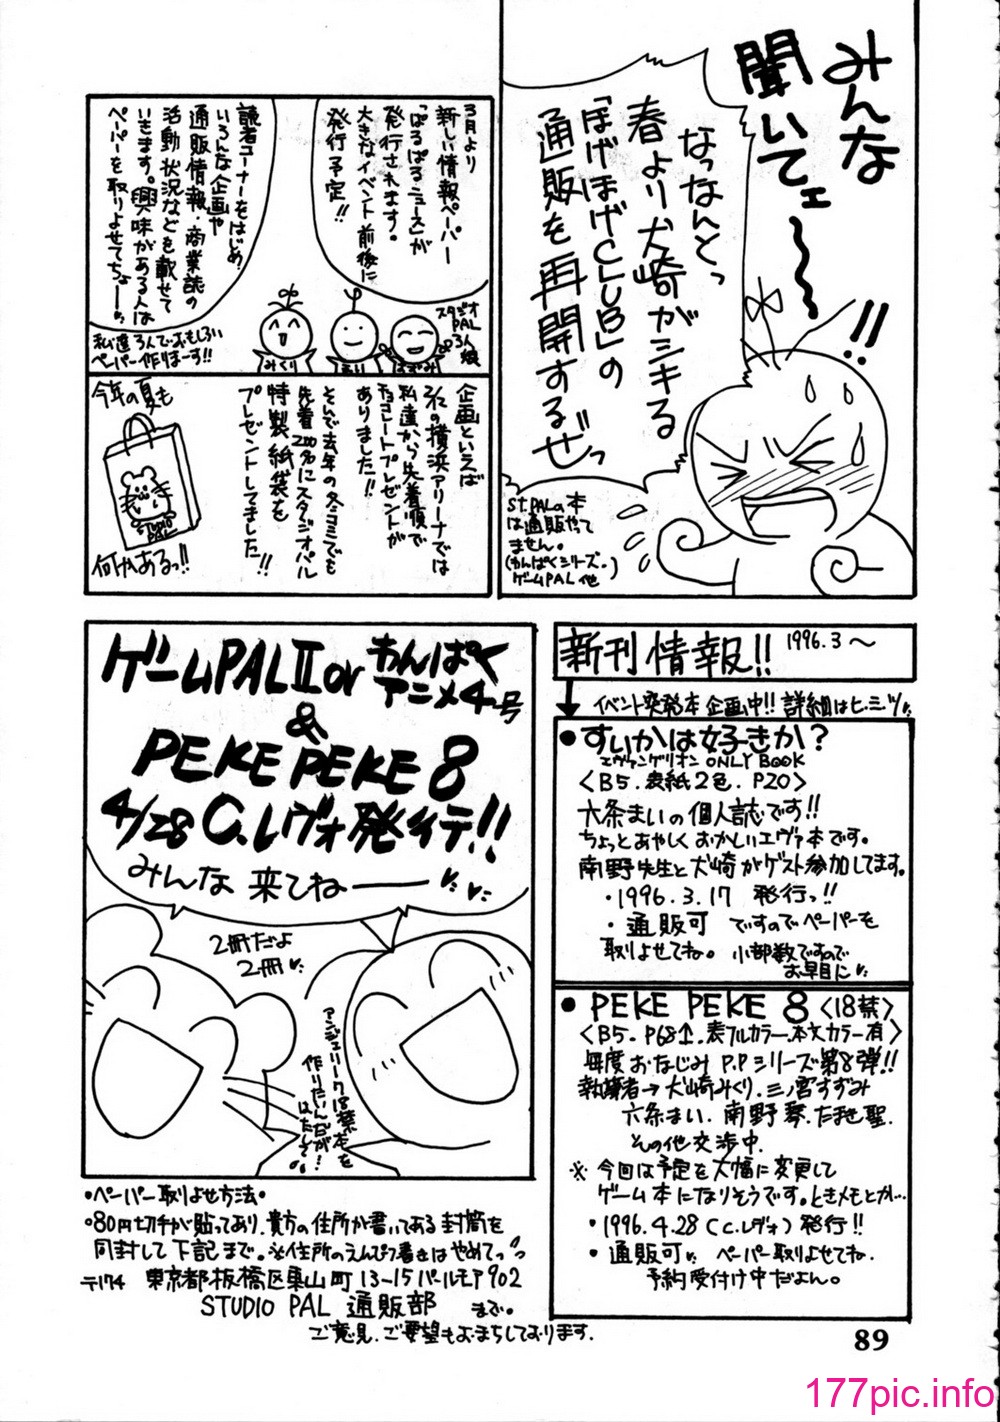 みんな
聞いてェ〜〜〜
!!
なっなんとっ
春より犬崎がシキる
「ほげほげCLUB」の
通販を再開するぜっ
ST.PALの本
は通販やって
ません。
(わんぱくシリーズ。
ゲームPAL他)
3月より
新しい情報ペーパー
「ぱるぱるニュース」が
発行されます。
大きなイベント前後に
発行予定!!
読者コーナーをはじめ、
いろんな企画や
通販情報・商業誌の
活動状況などを載せて
いきます。興味がある人は
ペーパーを取りよせてちょーっ
スタジオ
PAL
3人娘
みくり
まい
すずみ
私達3人でおもしろい
ペーパー作りまーす!!
企画といえば
の横浜アリーナでは
私達から先着順で
チョコレートプレゼントが
ありました!!
そんで去年の冬コミでも
先着200名にスタジオパル
特製紙袋を
プレゼントしてました!!
今年の夏も
STUDIO
PAL
何かあるっ!!
ゲームPALⅡor わんぱく
アニメ4号
&
PEKE PEKE 8
4/28 C.レヴォ発行デ!!
みんな 来てね———
2冊だよ
2冊
アンジェリーク18禁本を
作りたいんだが!
はたして。
新刊情報!! 1996.3〜
イベント突発本企画中!! 詳細はヒ・ミ・ツ
● すいかは好きか?
エヴァンゲリオン ONLY BOOK
〈B5.表紙2色.P20〉
六条まいの個人誌です!!
ちょっとあやしくおかしいエヴァ本です。
南野先生と犬崎がゲスト参加してます。
・1996.3.17 発行っ!!
・通販可 ですのでペーパーを
取りよせてね。小部数ですので
お早目に
● PEKE PEKE 8〈18禁〉
〈B5.P68↑.表フルカラー.本文カラー有〉
毎度おなじみP.Pシリーズ第8弾!!
執筆者→犬崎みくり.三ノ宮すずみ
六条まい.南野琴.たまき聖.
その他交渉中.
※ 今回は予定を大幅に変更して
ゲーム本になりそうです。ときメモとか…
・1996.4.28(C.レヴォ)発行!!
・通販可 ペーパー取りよせてね.
予約受付け中だよん。
・ペーパー取りよせ方法・
・80円切手が貼ってあり.貴方の住所が書いてある封筒を
同封して下記まで。※住所のえんぴつ書きはやめてっ
〒174 東京都板橋区東山町13-15パールモア902
STUDIO PAL 通販部 まで。
ご意見.ご要望もおまちしております.
89
177pic.info